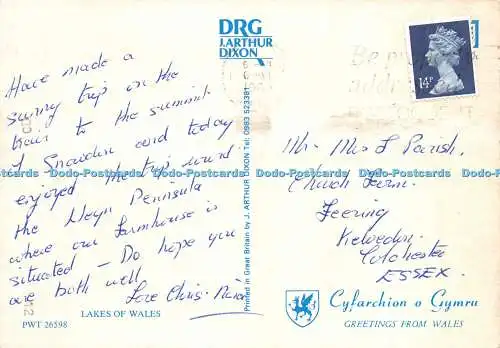 DRG
J. ARTHUR
DIXON
14P
Have made a
sunny trip on the
train to the summit
of Snowdon and today
enjoyed the trip round
the Lleyn Peninsula
where our farmhouse is
situated – Do hope you
are both well
Love Chris
Mr. Mrs Parish.
Church Farm.
Feering
Kelvedon
Colchester
ESSEX.
Printed in Great Britain by J. ARTHUR DIXON Tel: 0983 523381
Dodo-Postcards Dodo-Postcards Dodo-Postcards Dodo-Postcards Dodo-Postcards Dodo-Postcards
LAKES OF WALES
PWT 26598
Cyfarchion o Gymru
GREETINGS FROM WALES